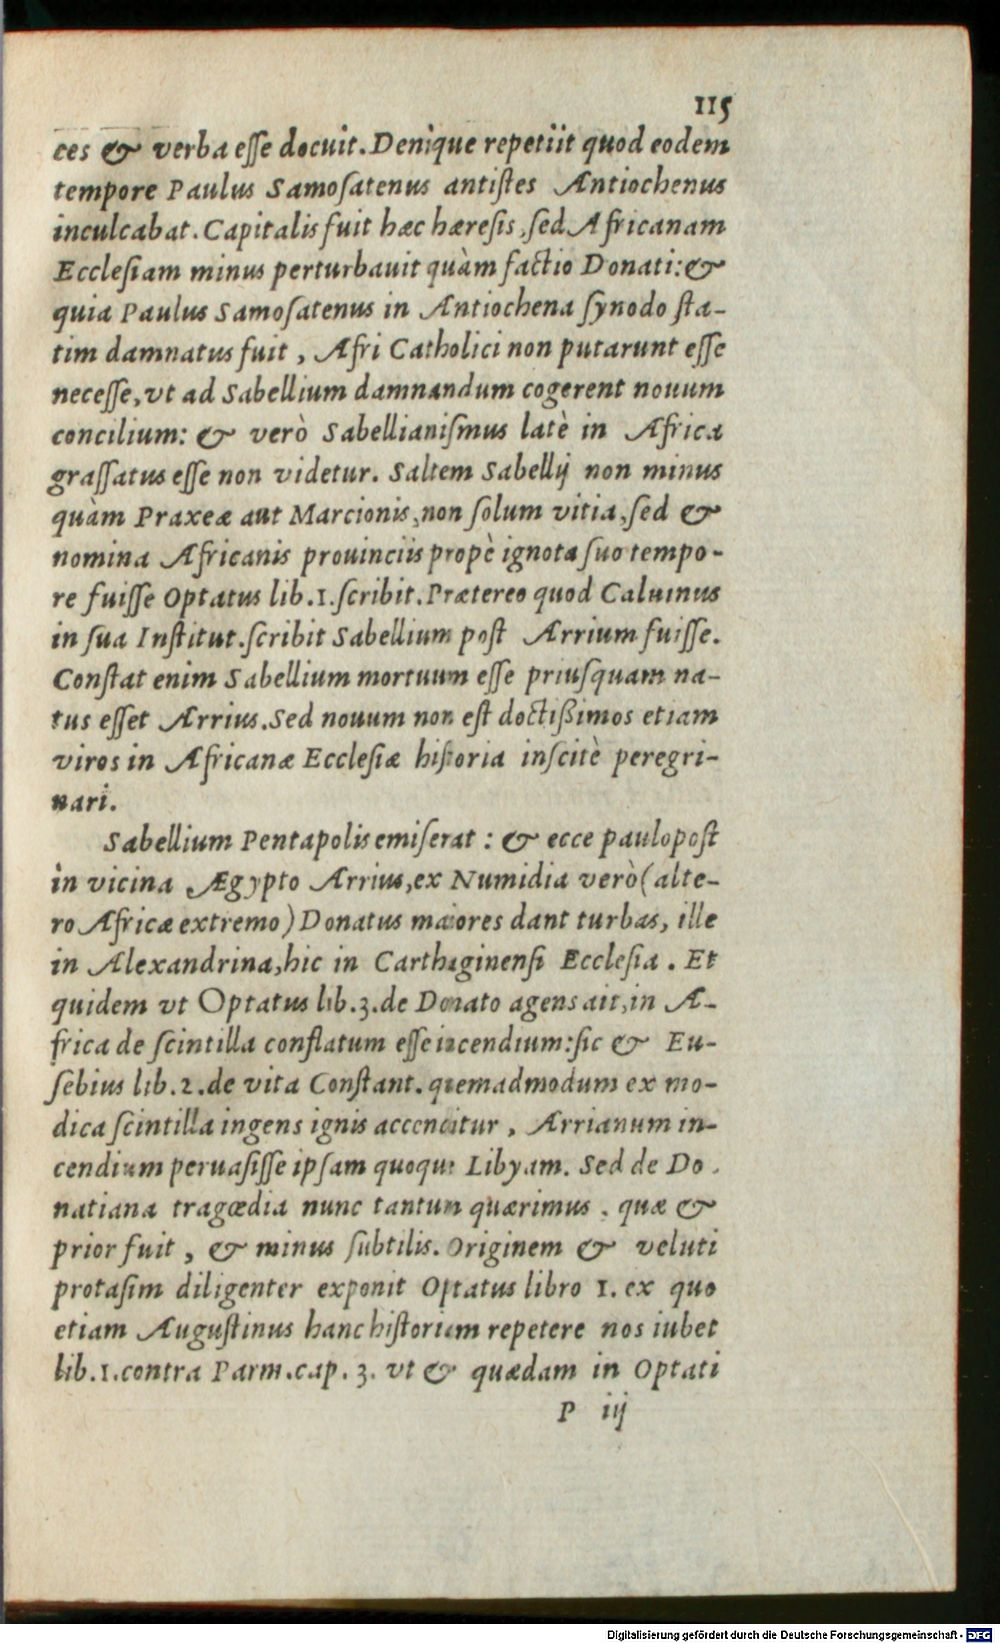 115
ces & verba eſſe docuit. Denique repetiit quod eodem
tempore Paulus Samoſatenus antiſtes Antiochenus
inculcabat. Capitalis fuit hæc hæreſis, ſed Africanam
Eccleſiam minus perturbauit quàm factio Donati: &
quia Paulus Samoſatenus in Antiochena ſynodo ſta-
tim damnatus fuit, Afri Catholici non putarunt eſſe
neceſſe, vt ad Sabellium damnandum cogerent nouum
concilium: & verò Sabellianiſmus latè in Africa
graſſatus eſſe non videtur. Saltem Sabellij non minus
quàm Praxeæ aut Marcionis, non ſolum vitia, ſed &
nomina Africanis prouinciis propè ignota ſuo tempo-
re fuiſſe Optatus lib. 1. ſcribit. Prætereo quod Caluinus
in ſua Inſtitut. ſcribit Sabellium poſt Arrium fuiſſe.
Conſtat enim Sabellium mortuum eſſe priuſquam na-
tus eſſet Arrius. Sed nouum non eſt doctißimos etiam
viros in Africanæ Eccleſiæ hiſtoria inſcitè peregri-
nari.
Sabellium Pentapolis emiſerat: & ecce paulopoſt
in vicina Ægypto Arrius, ex Numidia verò (alte-
ro Africæ extremo) Donatus maiores dant turbas, ille
in Alexandrina, hic in Carthaginenſi Eccleſia. Et
quidem vt Optatus lib. 3. de Donato agens ait, in A-
frica de ſcintilla conflatum eſſe incendium: ſic & Eu-
ſebius lib. 2. de vita Conſtant. quemadmodum ex mo-
dica ſcintilla ingens ignis accenditur, Arrianum in-
cendium peruaſiſſe ipſam quoque Libyam. Sed de Do-
natiana tragœdia nunc tantum quærimus, quæ &
prior fuit, & minus ſubtilis. Originem & veluti
protaſim diligenter exponit Optatus libro 1. ex quo
etiam Auguſtinus hanc hiſtoriam repetere nos iubet
lib. 1. contra Parm. cap. 3. vt & quædam in Optati
P iij
Digitalisierung gefördert durch die Deutsche Forschungsgemeinschaft - DFG